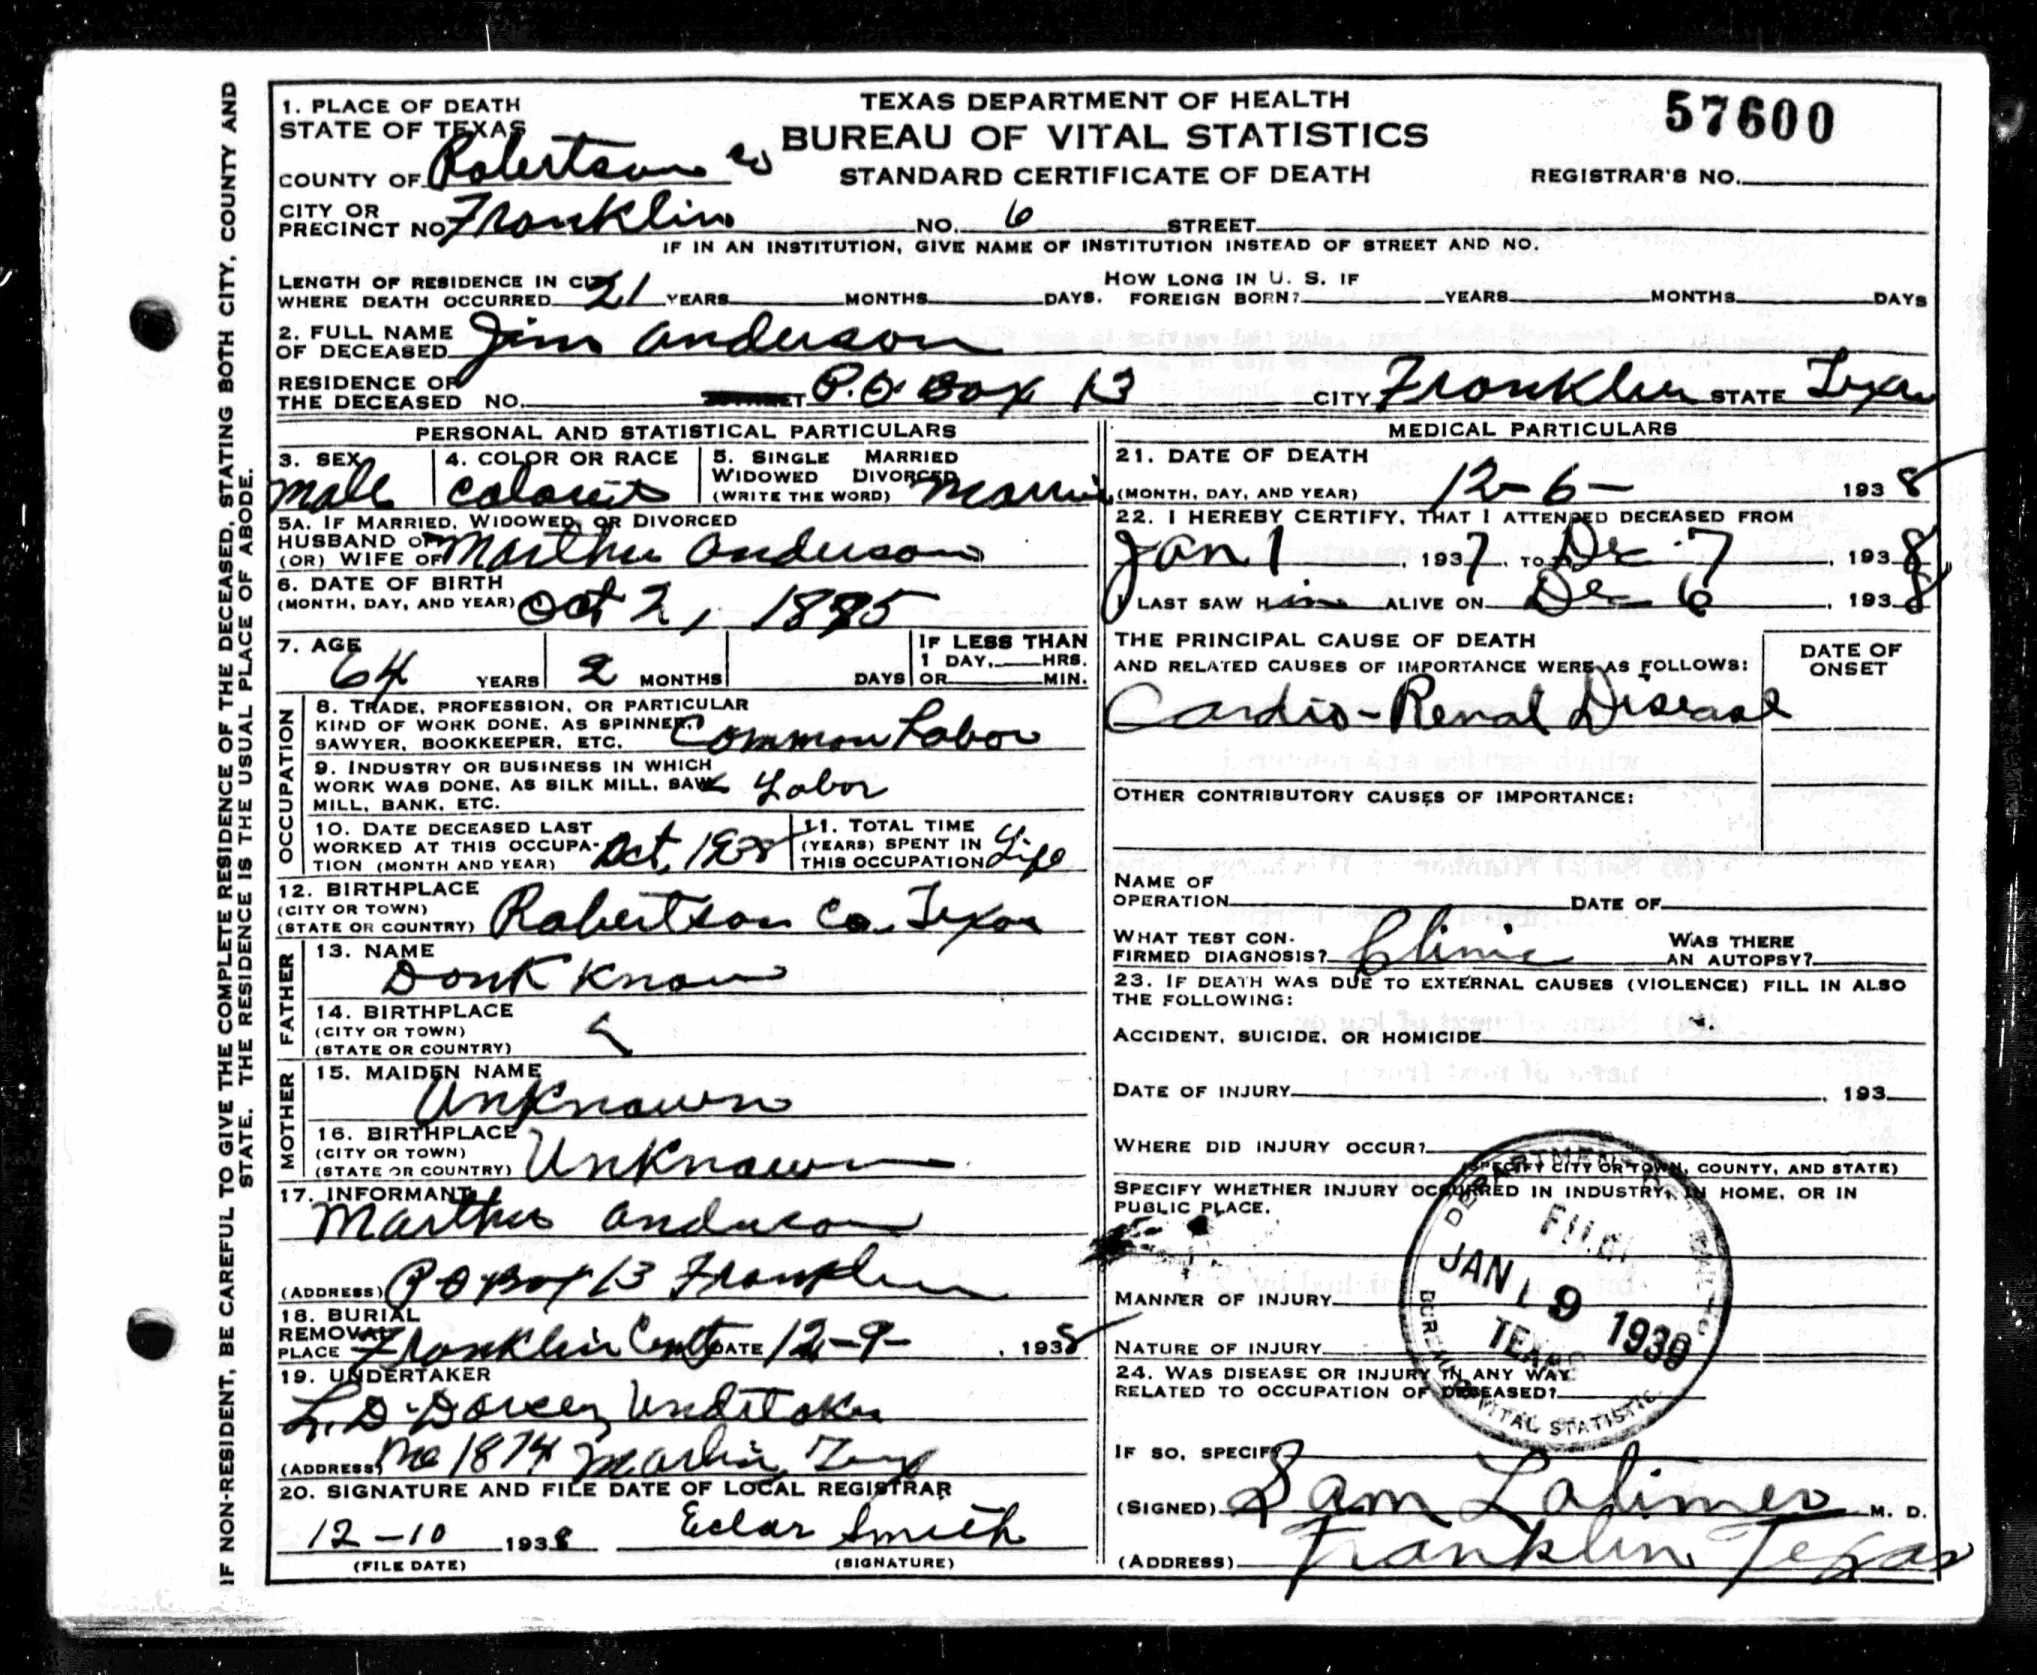 IF NON-RESIDENT, BE CAREFUL TO GIVE THE COMPLETE RESIDENCE OF THE DECEASED, STATING BOTH CITY, COUNTY AND
STATE. THE RESIDENCE IS THE USUAL PLACE OF ABODE.
TEXAS DEPARTMENT OF HEALTH
BUREAU OF VITAL STATISTICS
STANDARD CERTIFICATE OF DEATH
57600
REGISTRAR'S NO.
1. PLACE OF DEATH
STATE OF TEXAS
COUNTY OF Robertson Co
CITY OR
PRECINCT NO. Franklin NO. 6 STREET
IF IN AN INSTITUTION, GIVE NAME OF INSTITUTION INSTEAD OF STREET AND NO.
LENGTH OF RESIDENCE IN CITY
WHERE DEATH OCCURRED 21 YEARS MONTHS DAYS. HOW LONG IN U. S. IF
FOREIGN BORN? YEARS MONTHS DAYS
2. FULL NAME
OF DECEASED Jim Anderson
RESIDENCE OF
THE DECEASED NO. P.O Box 13 CITY Franklin STATE Texas
PERSONAL AND STATISTICAL PARTICULARS
3. SEX
Male
4. COLOR OR RACE
Colored
5. SINGLE MARRIED
WIDOWED DIVORCED
(WRITE THE WORD)
5A. IF MARRIED, WIDOWED, OR DIVORCED
HUSBAND OF
(OR) WIFE OF Marthu Anderson
6. DATE OF BIRTH
(MONTH, DAY, AND YEAR) Oct 2,
7. AGE
64 YEARS 2 MONTHS DAYS
IF LESS THAN
1 DAY, HRS.
OR MIN.
OCCUPATION
8. TRADE, PROFESSION, OR PARTICULAR
KIND OF WORK DONE, AS SPINNER,
SAWYER, BOOKKEEPER, ETC. Common Labor
9. INDUSTRY OR BUSINESS IN WHICH
WORK WAS DONE, AS SILK MILL, SAW
MILL, BANK, ETC. Labor
10. DATE DECEASED LAST
WORKED AT THIS OCCUPA-
TION (MONTH AND YEAR) Oct, 1938
11. TOTAL TIME
(YEARS) SPENT IN
THIS OCCUPATION Life
12. BIRTHPLACE
(CITY OR TOWN)
(STATE OR COUNTRY) Robertson Co. Texas
FATHER
13. NAME
Dont Know
14. BIRTHPLACE
(CITY OR TOWN)
(STATE OR COUNTRY)
MOTHER
15. MAIDEN NAME
Unknown
16. BIRTHPLACE
(CITY OR TOWN)
(STATE OR COUNTRY) Unknown
17. INFORMANT
Marthu Anderson
(ADDRESS) P O Box 13 Franklin
18. BURIAL
REMOVAL
PLACE Franklin DATE 12-9- , 1938
19. UNDERTAKER
L. D. Dorsey Undertaker
(ADDRESS) 1874 Marlin, Tex
20. SIGNATURE AND FILE DATE OF LOCAL REGISTRAR
12-10 1938 Eclar Smith
(FILE DATE) (SIGNATURE)
MEDICAL PARTICULARS
21. DATE OF DEATH
(MONTH, DAY, AND YEAR) 12-6- 1938
22. I HEREBY CERTIFY, THAT I ATTENDED DECEASED FROM
Jan 1 , 1937, TO Dec 7 , 1938
I LAST SAW Him ALIVE ON Dec 6 , 1938
THE PRINCIPAL CAUSE OF DEATH
AND RELATED CAUSES OF IMPORTANCE WERE AS FOLLOWS:
DATE OF
ONSET
Cardio-Renal Disease
OTHER CONTRIBUTORY CAUSES OF IMPORTANCE:
NAME OF
OPERATION DATE OF
WHAT TEST CON-
FIRMED DIAGNOSIS? Clinic WAS THERE
AN AUTOPSY?
23. IF DEATH WAS DUE TO EXTERNAL CAUSES (VIOLENCE) FILL IN ALSO
THE FOLLOWING:
ACCIDENT, SUICIDE, OR HOMICIDE
DATE OF INJURY , 193
WHERE DID INJURY OCCUR?
(SPECIFY CITY OR TOWN, COUNTY, AND STATE)
SPECIFY WHETHER INJURY OCCURRED IN INDUSTRY, IN HOME, OR IN
PUBLIC PLACE.
MANNER OF INJURY
NATURE OF INJURY
24. WAS DISEASE OR INJURY IN ANY WAY
RELATED TO OCCUPATION OF DECEASED?
IF SO, SPECIFY
(SIGNED) Sam Latimer M. D.
(ADDRESS) Franklin Texas
DEPARTMENT OF HEALTH
FILED
JAN 19 1939
TEXAS
BUREAU OF VITAL STATISTICS